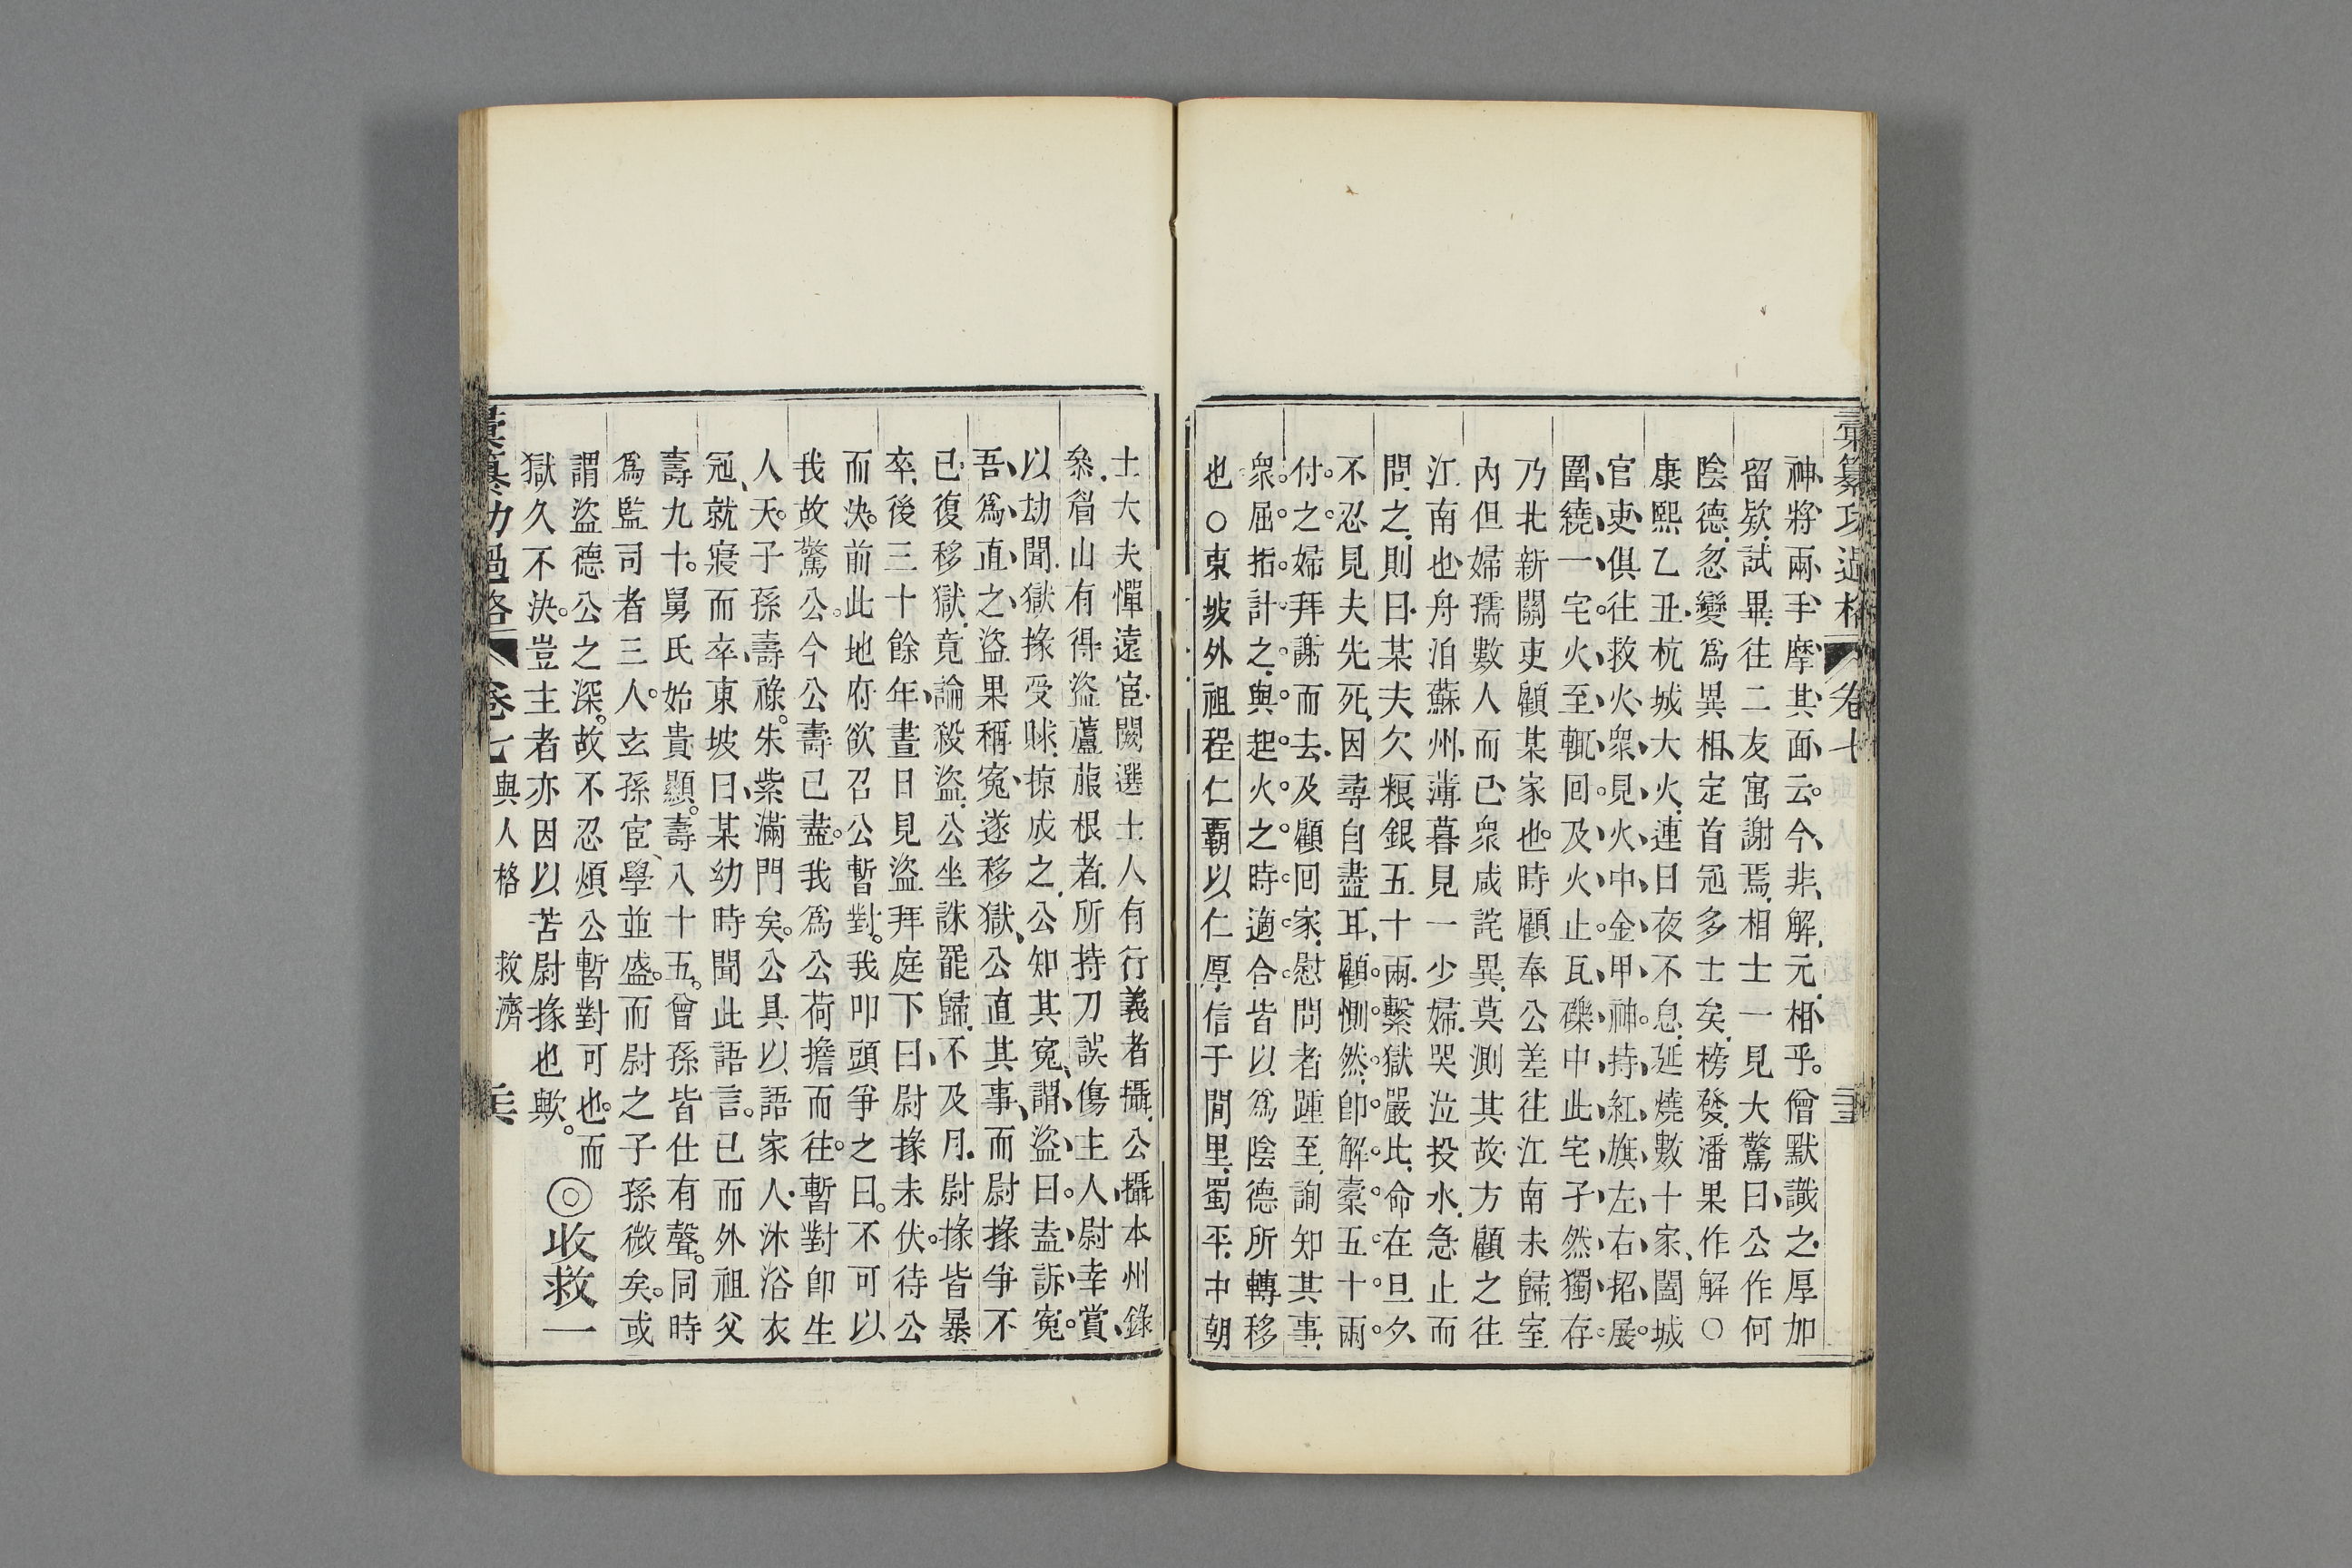 彙纂功過格 卷七
神將兩手摩其面云今非解元相乎僧默識之厚加
留欵試畢往二友寓謝焉相士一見大驚曰公作何
陰德忽變為異相定首冠多士矣榜發潘果作解○
康熙乙丑杭城大火連日夜不息延燒數十家闔城
官吏俱往救火衆見火中金甲神持紅旗左右招展
圍繞一宅火至輒回及火止瓦礫中此宅孑然獨存
乃北新關吏顧某家也時顧奉公差往江南未歸室
內但婦孺數人而已衆咸詫異莫測其故方顧之往
江南也舟泊蘇州薄暮見一少婦哭泣投水急止而
問之則曰某夫欠粮銀五十兩繫獄嚴比命在旦夕
不忍見夫先死因尋自盡耳顧惻然卽解橐五十兩
付之婦拜謝而去及顧回家慰問者踵至詢知其事
衆屈指計之與起火之時適合皆以為陰德所轉移
也○東坡外祖程仁霸以仁厚信于閭里蜀平中朝
士大夫憚遠宦闕選士人有行義者攝公攝本州錄
叅眉山有得盜蘆菔根者所持刀誤傷主人尉幸賞
以劫聞獄掾受賕掠成之公知其冤謂盜曰盍訴冤
吾為直之盜果稱冤遂移獄公直其事而尉掾爭不
已復移獄竟論殺盜公坐誅罷歸不及月尉掾皆暴
卒後三十餘年晝日見盜拜庭下曰尉掾未伏待公
而決前此地府欲召公暫對我叩頭爭之曰不可以
我故驚公今公壽已盡我為公荷擔而往暫對卽生
人天子孫壽祿朱紫滿門矣公具以語家人沐浴衣
冠就寢而卒東坡曰某幼時聞此語言已而外祖父
壽九十舅氏始貴顯壽八十五曾孫皆仕有聲同時
為監司者三人玄孫宦學並盛而尉之子孫微矣或
謂盜德公之深故不忍煩公暫對可也而
獄久不決豈主者亦因以苦尉掾也歟
◎收救一
彙纂功過格 卷七 與人格 救濟